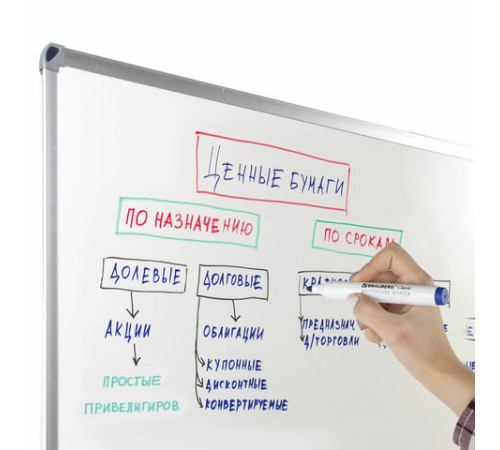 ЦЕННЫЕ БУМАГИ
ПО НАЗНАЧЕНИЮ
ПО СРОКАМ
ДОЛЕВЫЕ
ДОЛГОВЫЕ
BRAUBERG Classic
WHITEBOARD MARKER
АКЦИИ
ОБЛИГАЦИИ
ПРЕДНАЗНАЧ.
Д/ТОРГОВЛИ
ПРОСТЫЕ
ПРИВЕЛИГИРОВ
КУПОННЫЕ
ДИСКОНТНЫЕ
КОНВЕРТИРУЕМЫЕ